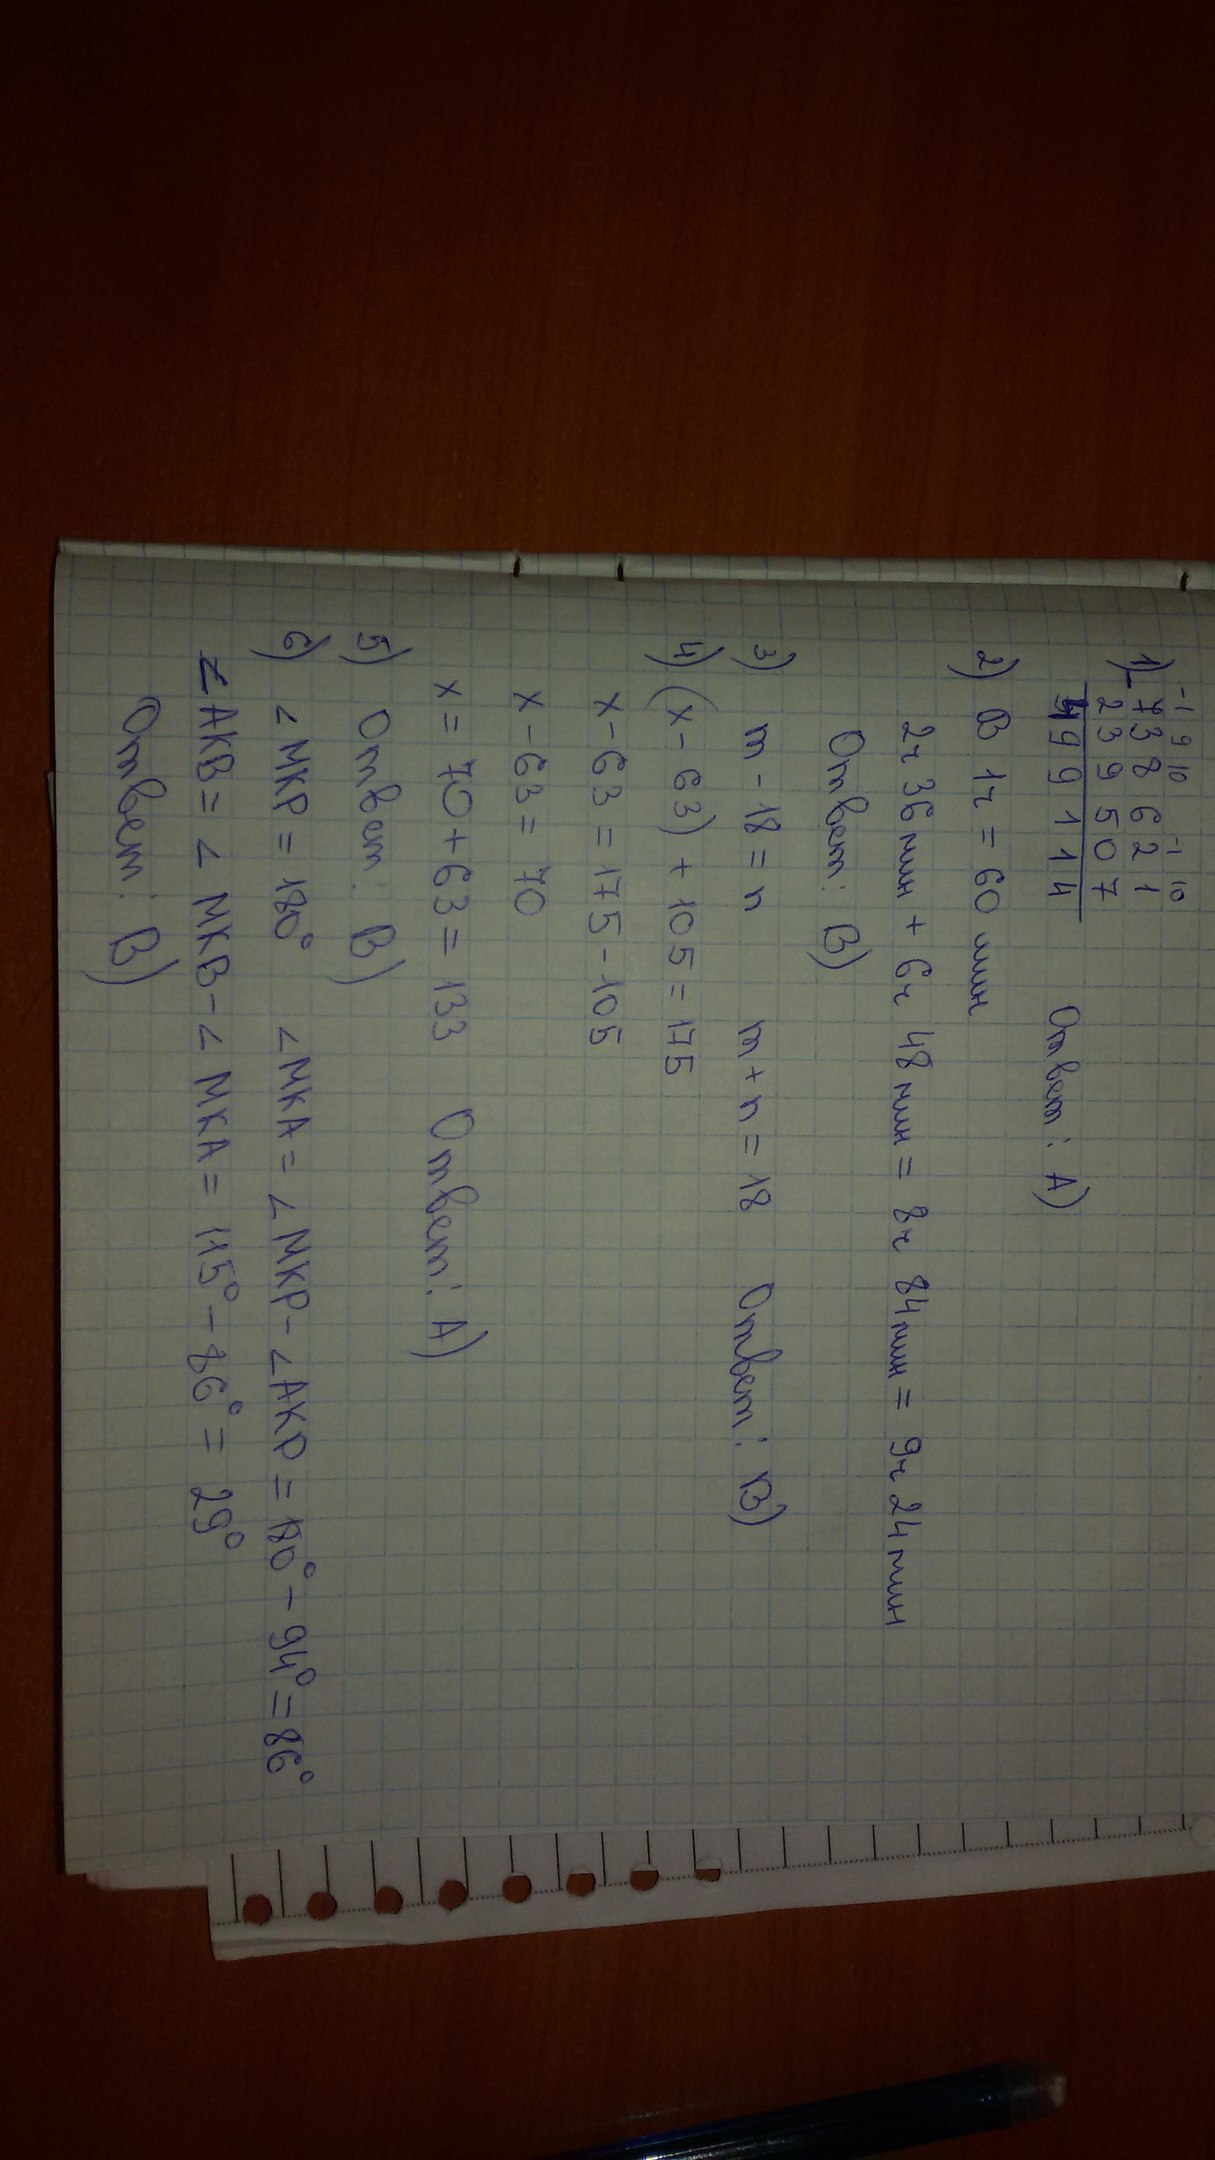 -1 9 10 -1 10
1) 738621
- 239507
499114 Ответ: А)
2) В 1ч = 60 мин
2ч 36 мин + 6ч 48 мин = 8ч 84 мин = 9ч 24 мин
Ответ: В)
3) m - 18 = n m + n = 18 Ответ: В)
4) (x - 63) + 105 = 175
x - 63 = 175 - 105
x - 63 = 70
x = 70 + 63 = 133 Ответ: А)
5) Ответ: В)
6) ∠MKP = 180° ∠MKA = ∠MKP - ∠AKP = 180° - 94° = 86°
∠AKB = ∠MKB - ∠MKA = 115° - 86° = 29°
Ответ: В)